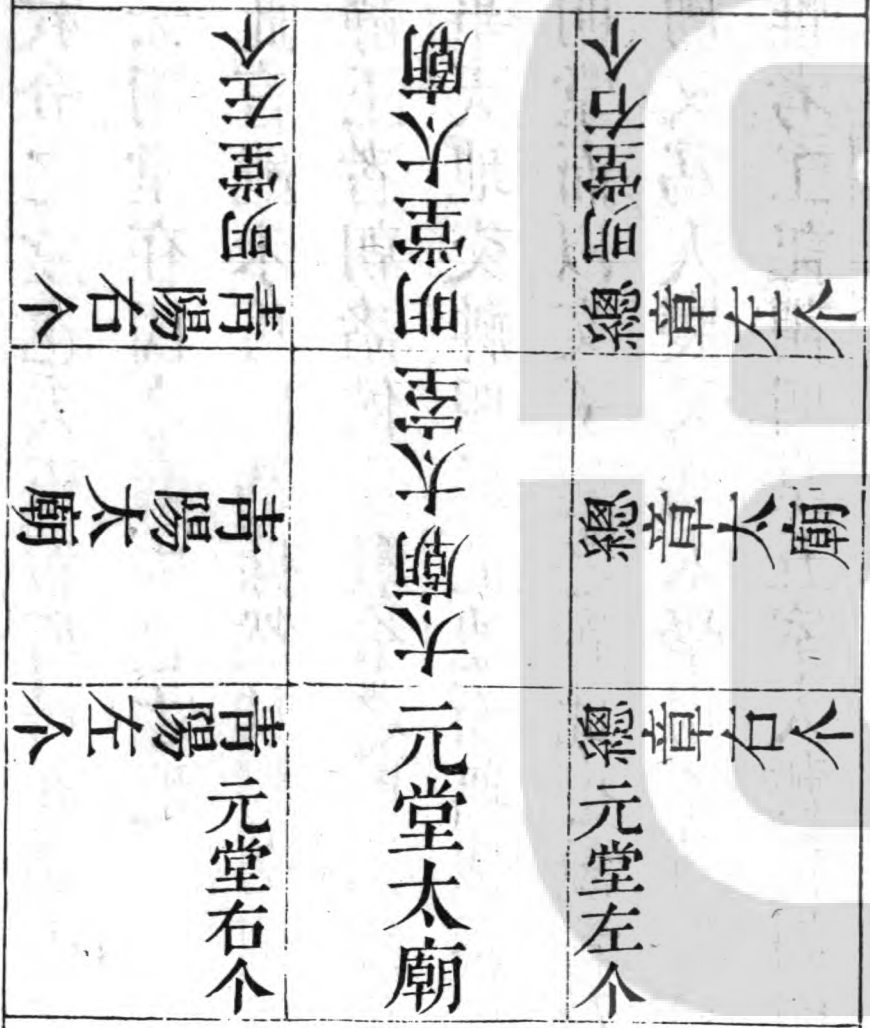 明堂右个
總章左个
總章太廟
總章右个
元堂左个
明堂太廟
太廟太室
元堂太廟
明堂左个
青陽右个
青陽太廟
青陽左个
元堂右个